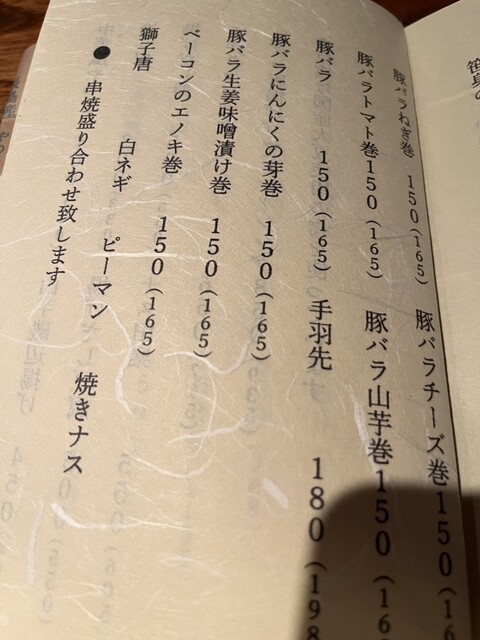 笹身の
豚バラねぎ巻 150(165) 豚バラチーズ巻150(16
豚バラトマト巻150(165) 豚バラ山芋巻150(16
豚バラ 150(165) 手羽先 180(198
豚バラにんにくの芽巻 150(165)
豚バラ生姜味噌漬け巻 150(165)
ベーコンのエノキ巻 150(165)
獅子唐 白ネギ ピーマン 焼きナス
●串焼盛り合わせ致します